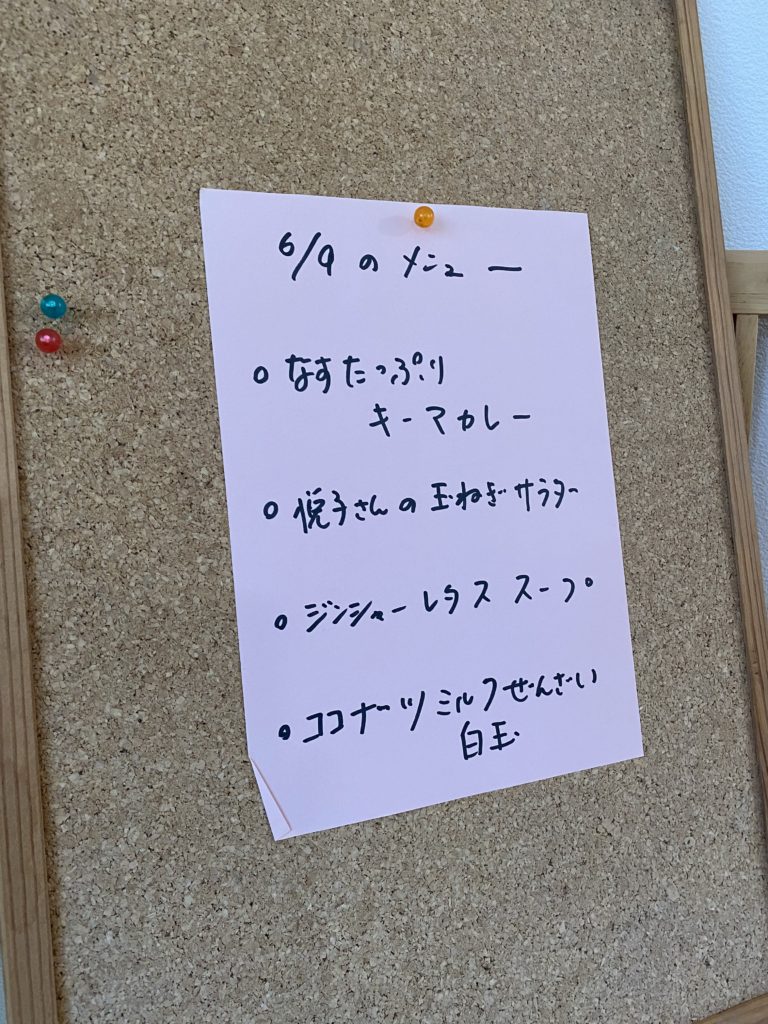 6/9 の メニュー
○ なす たっぷり
キーマカレー
○ 悦子さんの玉ねぎサラダー
○ ジンジャーレタス スープ
○ ココナーツミルクぜんざい
白玉